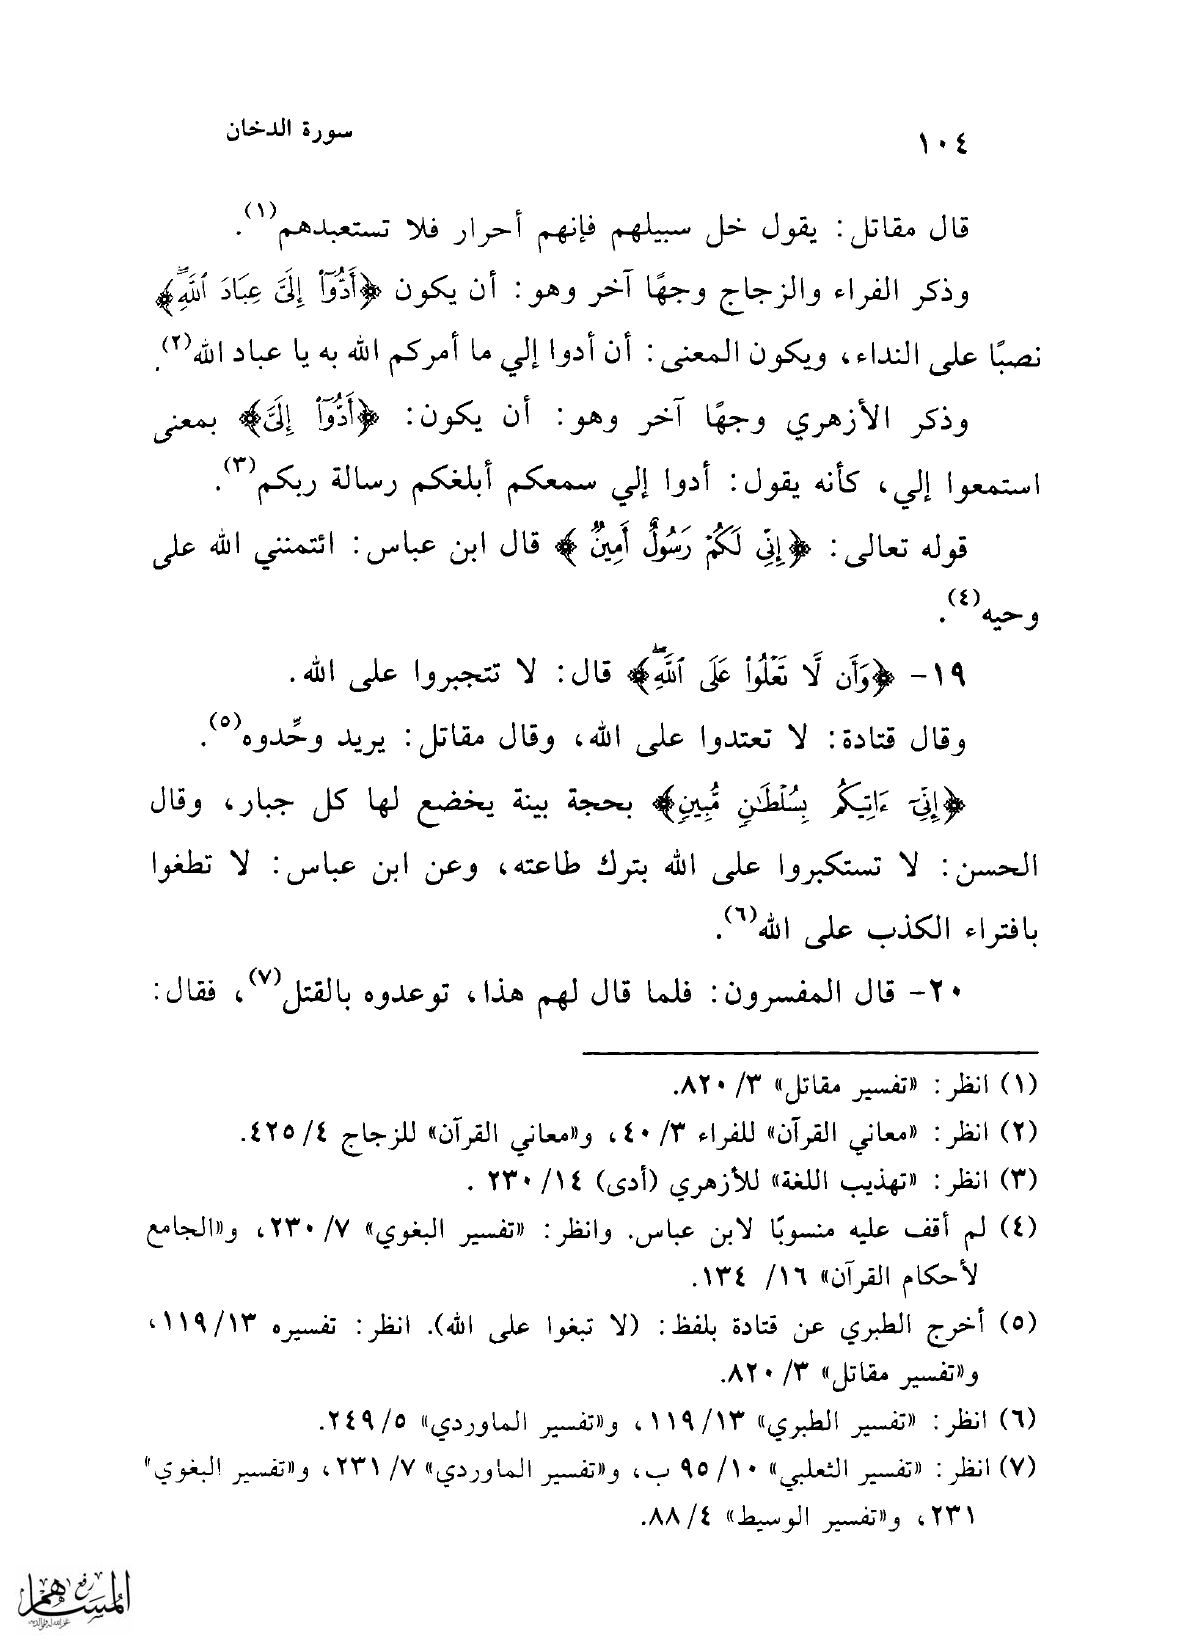 ١٠٤ سورة الدخان
قال مقاتل: يقول خل سبيلهم فإنهم أحرار فلا تستعبدهم(١).
وذكر الفراء والزجاج وجهًا آخر وهو: أن يكون ﴿أَدُّوٓا۟ إِلَىَّ عِبَادَ ٱللَّهِۖ﴾
نصبًا على النداء، ويكون المعنى: أن أدوا إلي ما أمركم الله به يا عباد الله(٢).
وذكر الأزهري وجهًا آخر وهو: أن يكون: ﴿أَدُّوٓا۟ إِلَىَّ﴾ بمعنى
استمعوا إلي، كأنه يقول: أدوا إلي سمعكم أبلغكم رسالة ربكم(٣).
قوله تعالى: ﴿إِنِّى لَكُمْ رَسُولٌ أَمِينٌ﴾ قال ابن عباس: ائتمنني الله على
وحيه(٤).
١٩- ﴿وَأَن لَّا تَعْلُوا۟ عَلَى ٱللَّهِۖ﴾ قال: لا تتجبروا على الله.
وقال قتادة: لا تعتدوا على الله، وقال مقاتل: يريد وحِّدوه(٥).
﴿إِنِّىٓ ءَاتِيكُم بِسُلْطَٰنٍ مُّبِينٍ﴾ بحجة بينة يخضع لها كل جبار، وقال
الحسن: لا تستكبروا على الله بترك طاعته، وعن ابن عباس: لا تطغوا
بافتراء الكذب على الله(٦).
٢٠- قال المفسرون: فلما قال لهم هذا، توعدوه بالقتل(٧)، فقال:
(١) انظر: «تفسير مقاتل» ٣/ ٨٢٠.
(٢) انظر: «معاني القرآن» للفراء ٣/ ٤٠، و«معاني القرآن» للزجاج ٤/ ٤٢٥.
(٣) انظر: «تهذيب اللغة» للأزهري (أدى) ١٤/ ٢٣٠ .
(٤) لم أقف عليه منسوبًا لابن عباس. وانظر: «تفسير البغوي» ٧/ ٢٣٠، و«الجامع
لأحكام القرآن» ١٦/ ١٣٤.
(٥) أخرج الطبري عن قتادة بلفظ: (لا تبغوا على الله). انظر: تفسيره ١٣/ ١١٩،
و«تفسير مقاتل» ٣/ ٨٢٠.
(٦) انظر: «تفسير الطبري» ١٣/ ١١٩، و«تفسير الماوردي» ٥/ ٢٤٩.
(٧) انظر: «تفسير الثعلبي» ١٠/ ٩٥ ب، و«تفسير الماوردي» ٧/ ٢٣١، و«تفسير البغوي»
٢٣١، و«تفسير الوسيط» ٤/ ٨٨.